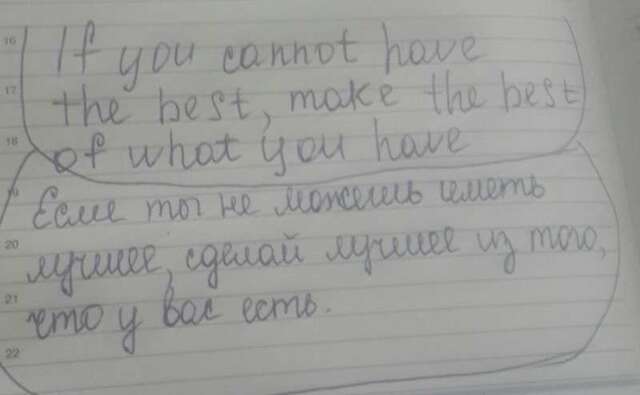 16
If you cannot have
17
the best, make the best
18
of what you have
Если ты не можешь иметь
20
лучшее, сделай лучшее из того,
21
что у вас есть.
22